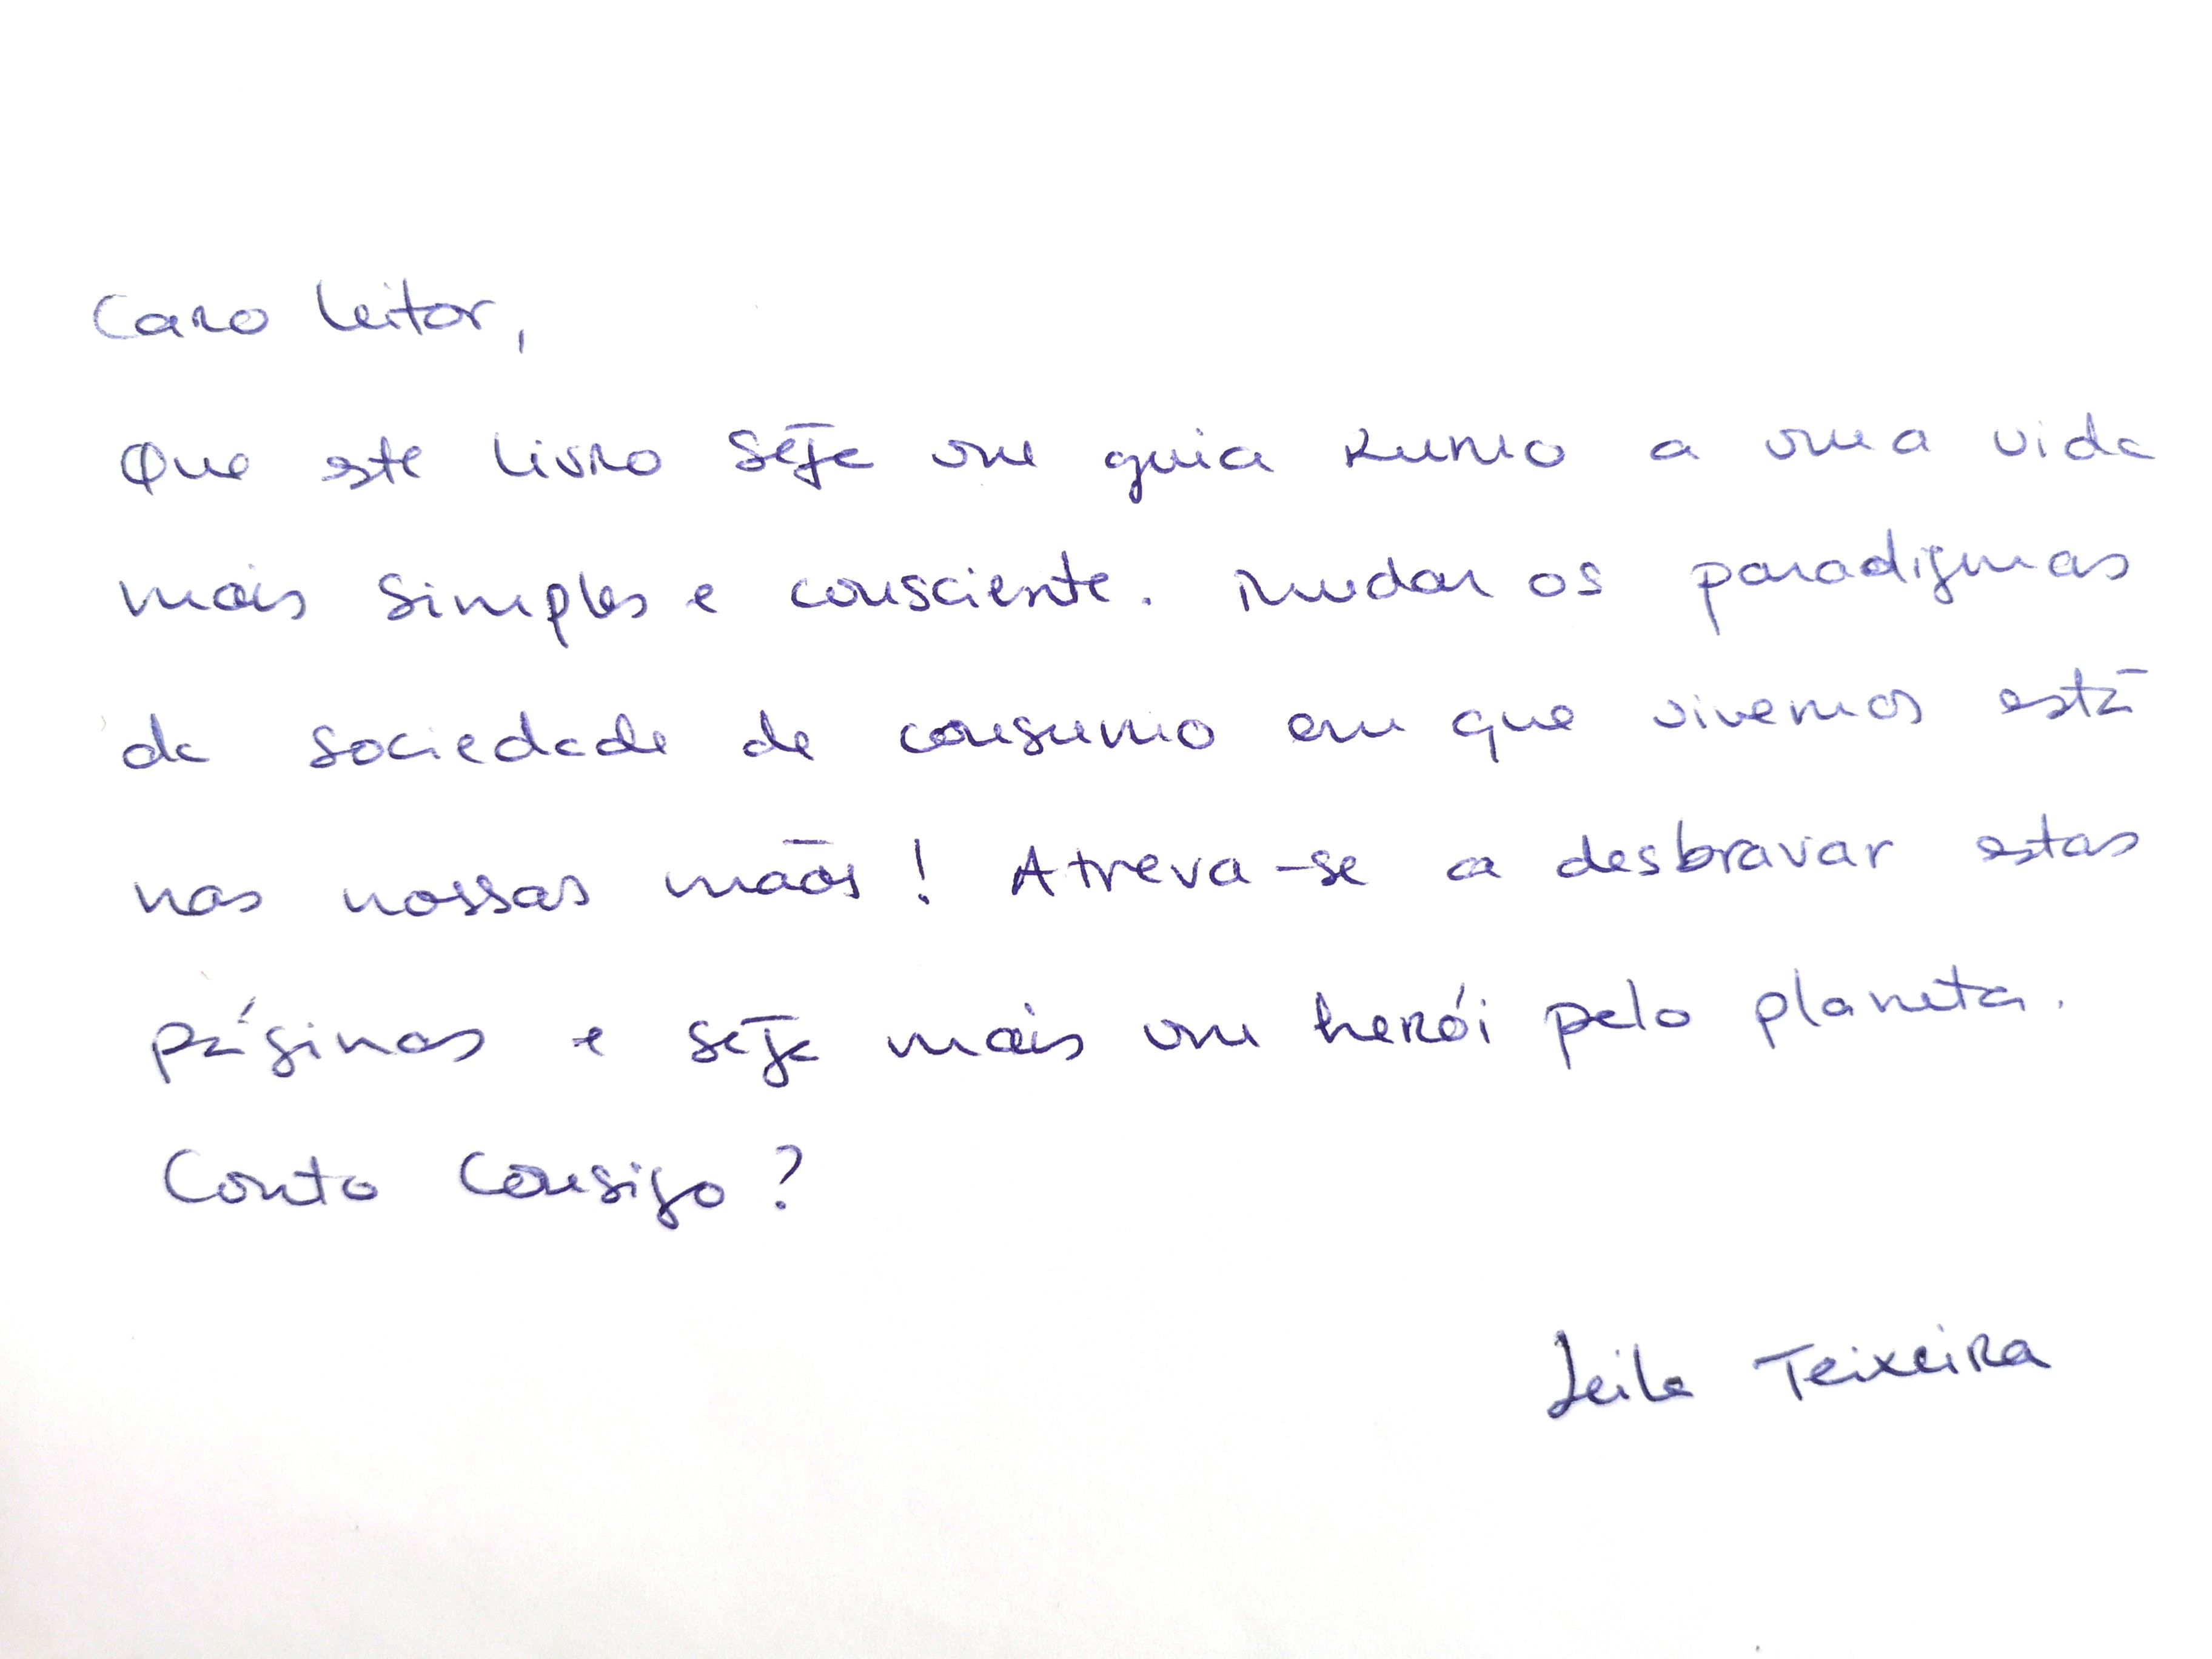 Caro leitor,
Que este livro seja um guia rumo a uma vida
mais simples e consciente. Mudar os paradigmas
da sociedade de consumo em que vivemos está
nas nossas mãos! Atreva-se a desbravar estas
páginas e seja mais um herói pelo planeta.
Conto consigo?
Leila Teixeira